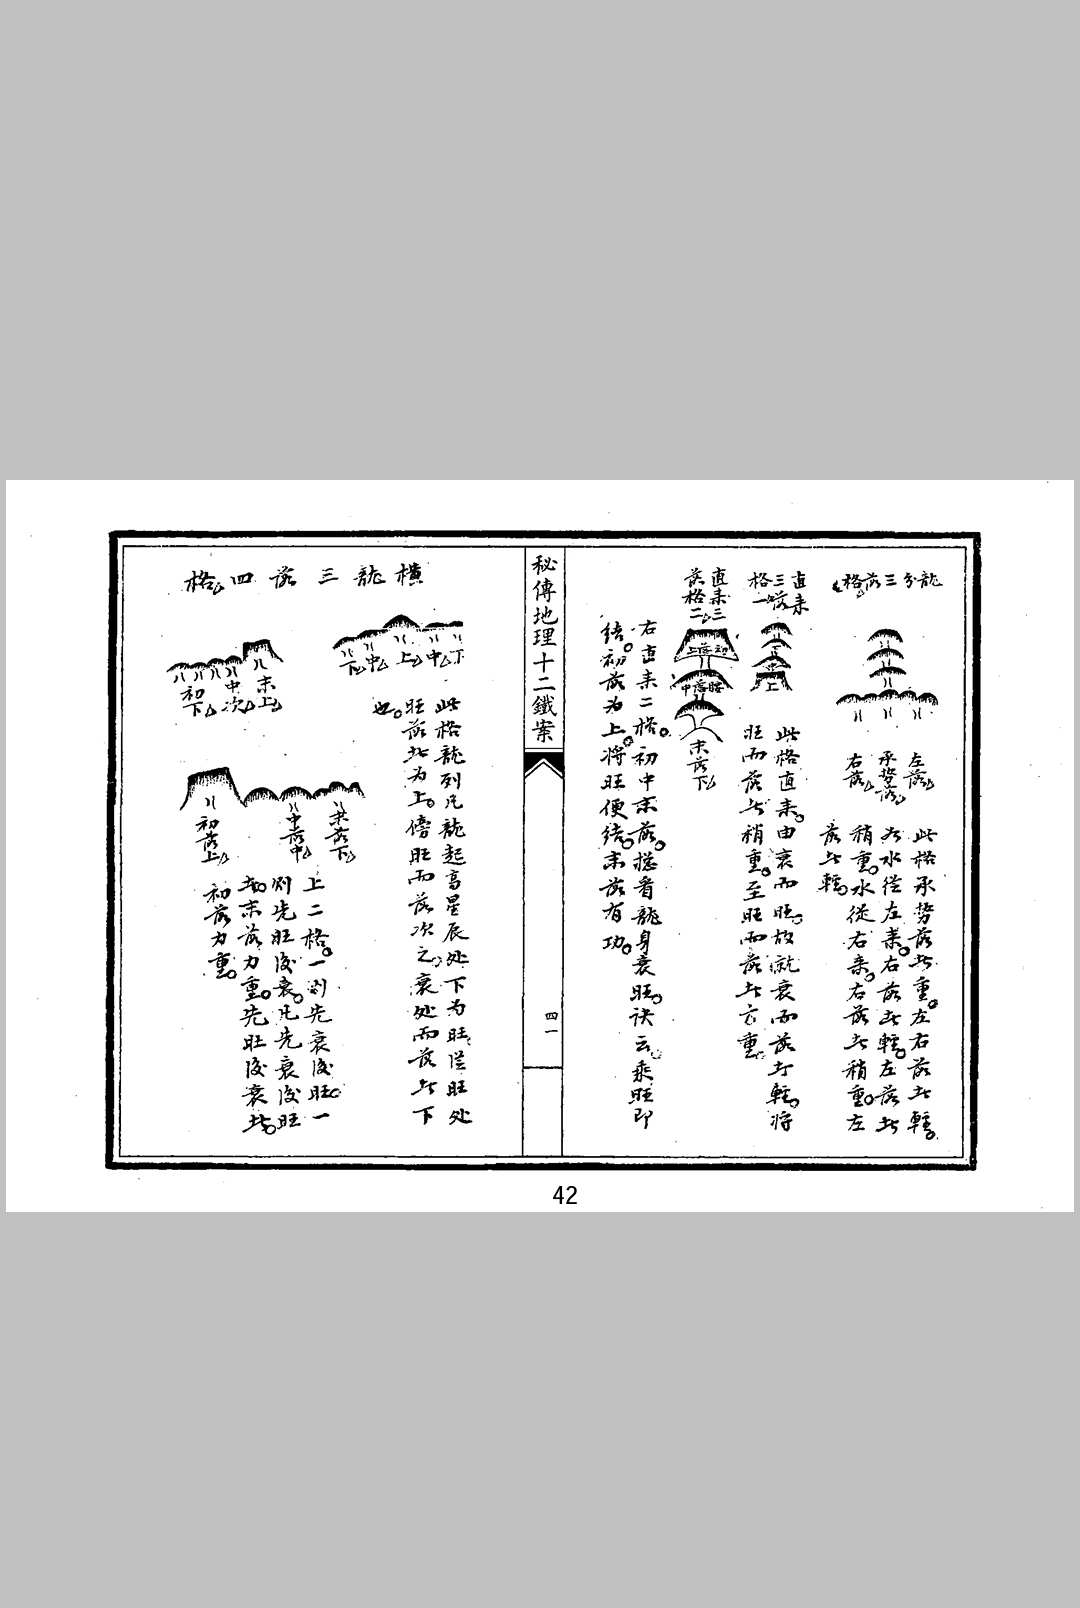 龍分三落格
左落
承勢落
右落
此格承勢落者重左右落者輕
如水從左來右落者輕左落者
稍重水從右來右落者稍重左
落者輕
直來
三落
格一
中
上
此格直來由衰而旺故就衰而落力輕將
旺而落者稍重至旺而落者言重
直來三
落格二
初落上
腰落中
末落下
右直來二格初中末落總看龍身衰旺訣云乘旺即
結初落为上將旺便結末落有功
秘傳地理十二鐵案
四一
橫龍三落四格
下
中
上
中
下
此格龍列凡龍起高星辰处下为旺從旺处
旺落者为上傍旺而落次之衰处而落者下
也
末上
中次
初下
初落上
中落中
末落下
上二格一則先衰後旺一
則先旺後衰凡先衰後旺
者末落力重先旺後衰者
初落力重
42